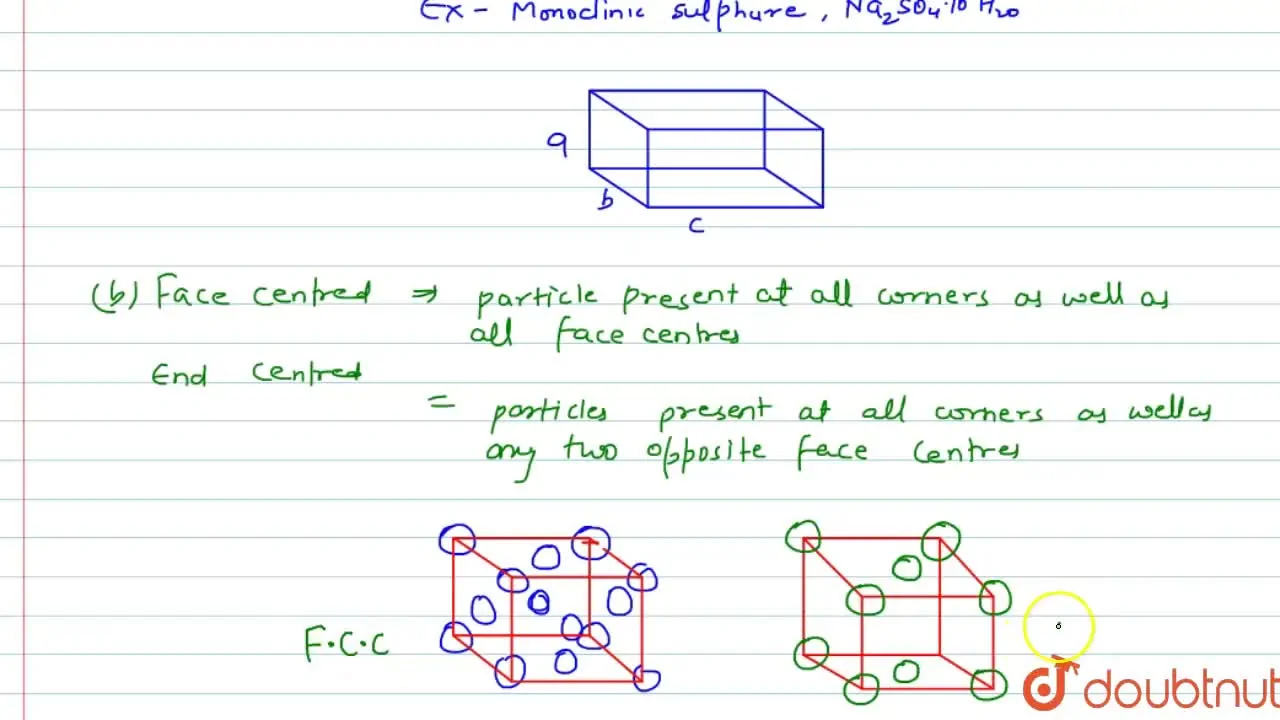 Ex - Monoclinic sulphure, Na2SO4·10 H2O
a
b
c
(b) Face centred ⇒ particle present at all corners as well as
all face centres
End centred
= particles present at all corners as well as
any two opposite face centres
F.C.C
doubtnut